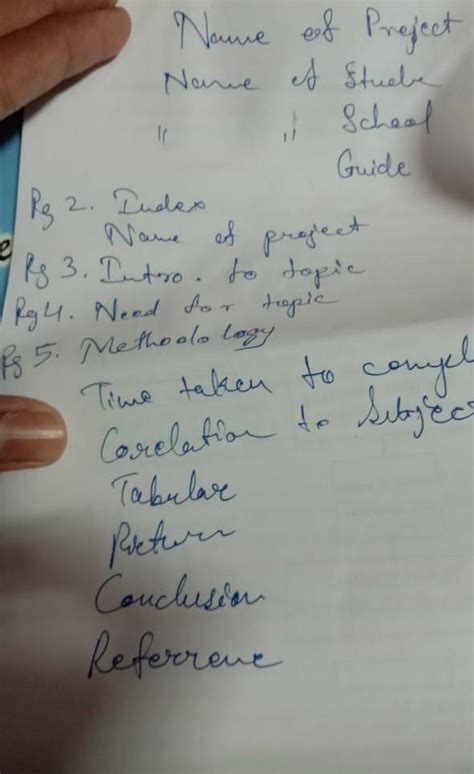 Name of Project
Name of Stude
" " School
Guide
Pg 2. Index
Name of project
Pg 3. Intro. to topic
Pg 4. Need for topic
Pg 5. Methodology
Time taken to compl
Corelation to Subjec
Tabular
Picture
Conclusion
Referrence